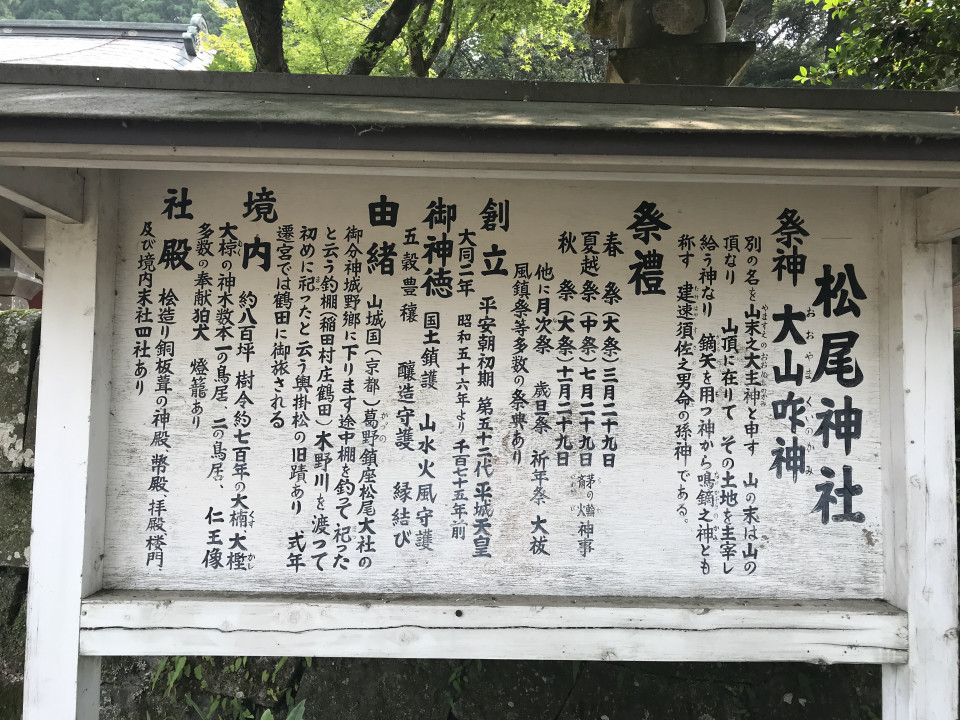 松尾神社
祭神 大山咋神
おおやまくいのかみ
別の名を山末之大主神と申す 山の末は山の
頂なり 山頂に在りて その土地を主宰し
給う神なり 鏑矢を用つ神から鳴鏑之神とも
称す 建速須佐之男命の孫神である。
祭禮
春 祭(大祭)三月二十九日
夏越 祭(中祭)七月二十九日 茅の輪 斎火 神事
秋 祭(大祭)十月二十九日
他に月次祭 歳旦祭 祈年祭 大祓
風鎮祭等多数の祭典あり
創立 平安朝初期 第五十二代平城天皇
大同二年 昭和五十六年より 千百七十五年前
御神徳 国土鎮護 山水火風守護
五穀豊穣 醸造守護 縁結び
由緒 山城国(京都)葛野鎮座松尾大社の
御分神城野郷に下ります途中棚を釣って祀った
と云う釣棚(稲田村庄鶴田)木野川を渡つて
初めに祀ったと云う輿掛松の旧蹟あり 弐年
遷宮では鶴田に御旅される
境内 約八百坪 樹令約七百年の大楠、大樫
大椋の神木数本一の鳥居、二の鳥居、 仁王像
多数の奉献狛犬 燈籠あり
社殿 桧造り銅板葺の神殿、幣殿、拝殿楼門、
及び境内末社四社あり